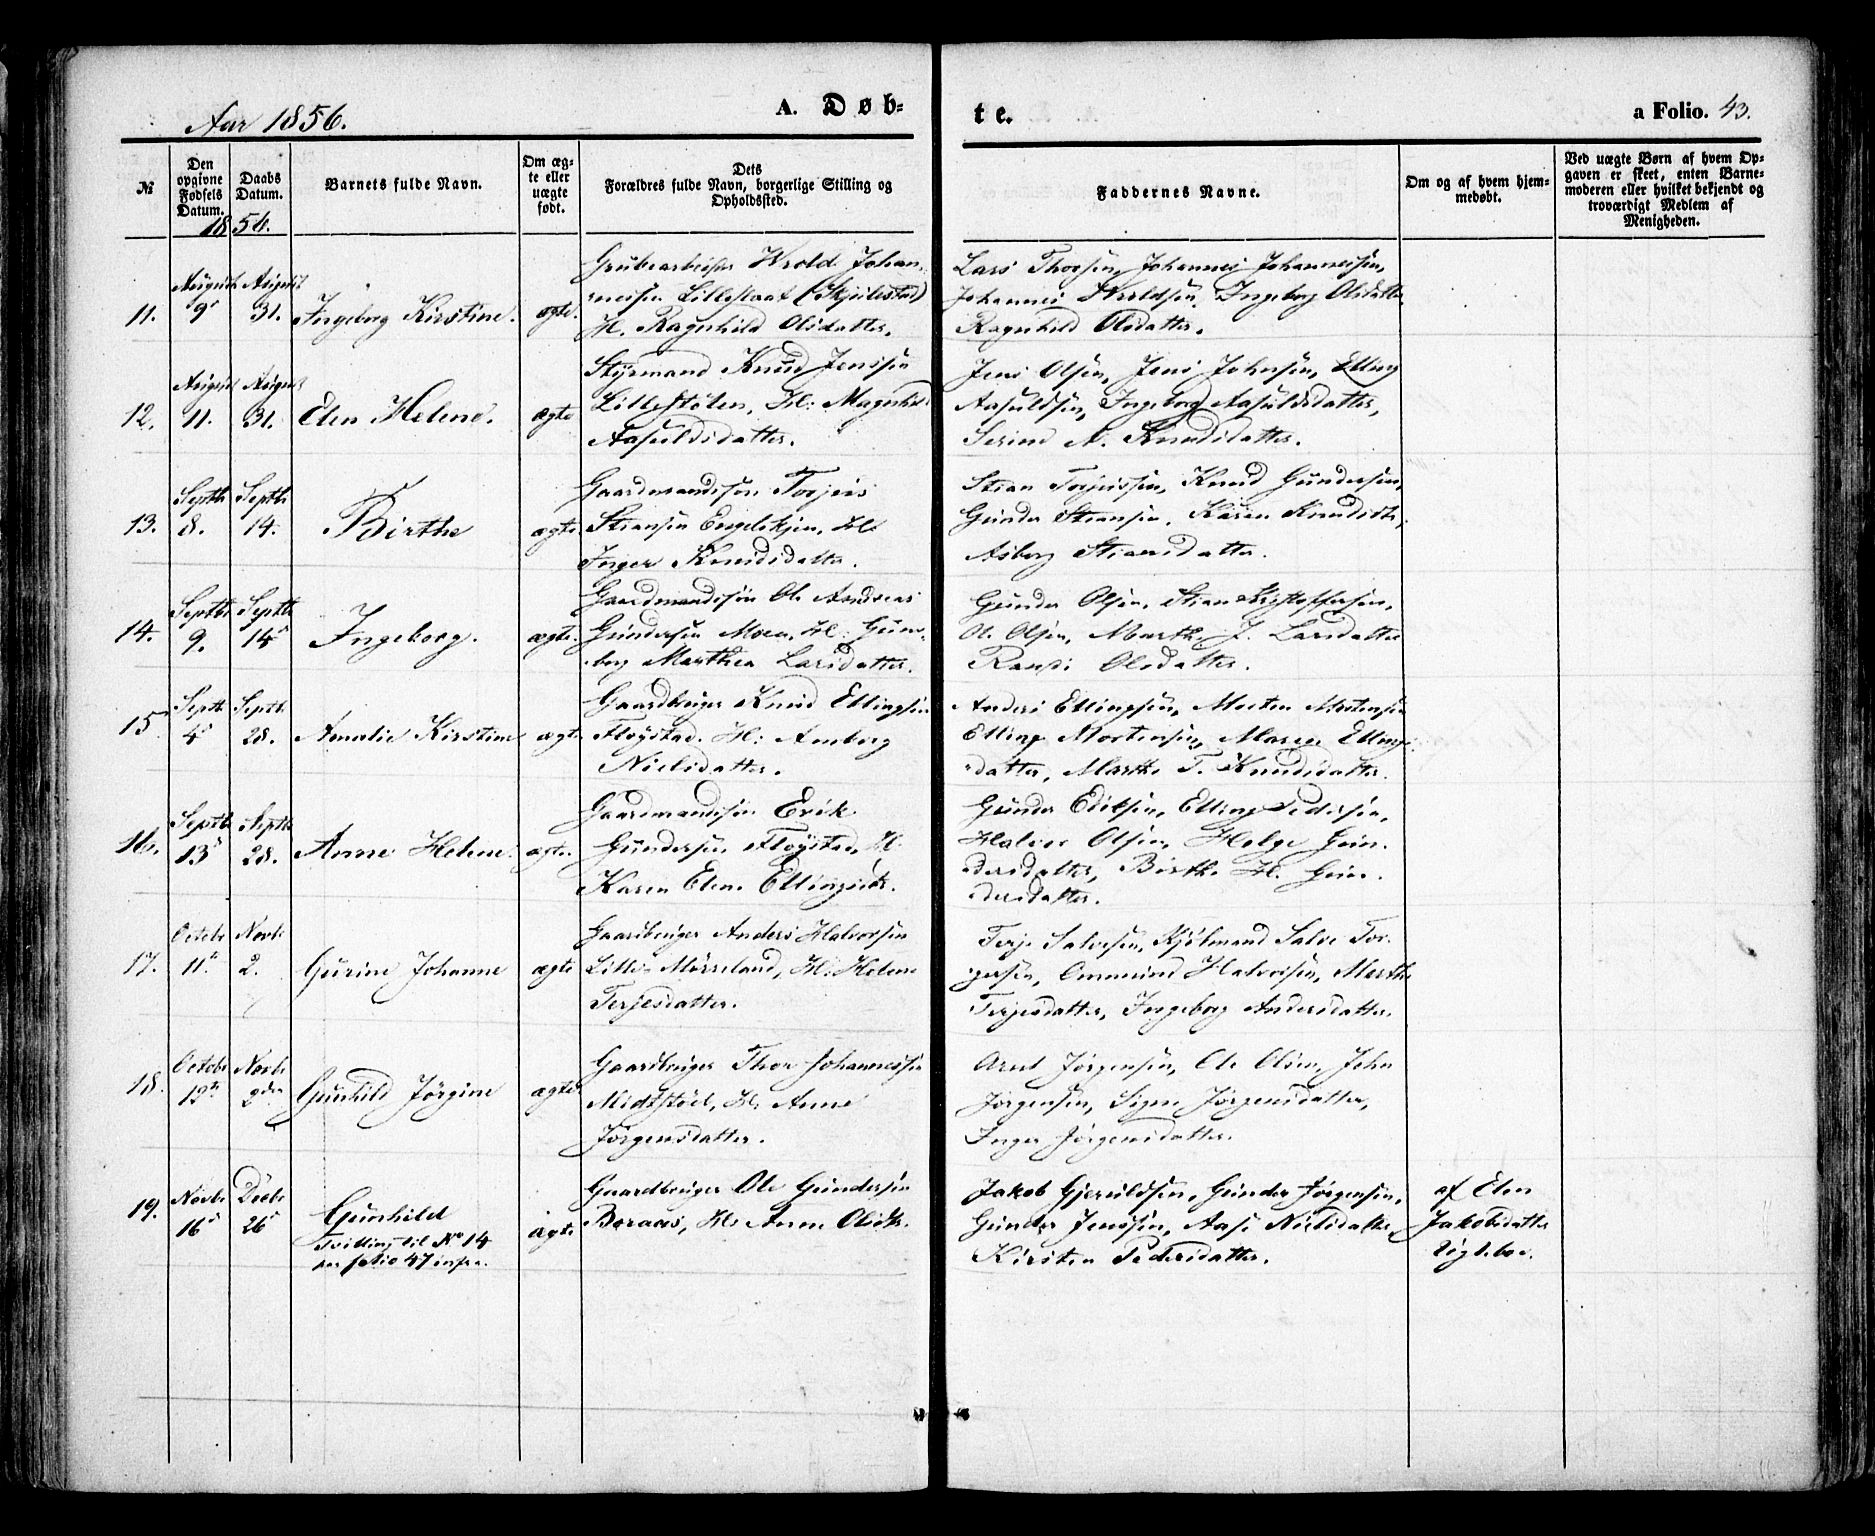 Aar 1856.
A. Døb-
te.
a Folio. 43.
№
Den opgivne Fødsels Datum.
Daabs Datum.
Barnets fulde Navn.
Om ægte eller uægte født.
Dets Forældres fulde Navn, borgerlige Stilling og Opholdssted.
Faddernes Navne.
Om og af hvem hjemmedøbt.
Ved uægte Børn af hvem Opgaven er skeet, enten Barnemoderen eller hvilket bekjendt og troværdigt Medlem af Menigheden.
1856.
11.
August 9
August 31.
Ingeborg Kirstine.
ægte.
Grubearbeider Wrold Johan-
nessen Lillestaat (Skjulestad)
H. Ragnhild Olsdatter.
Lars Thorsen, Johannes Johannessen,
Johannes Wroldsen, Ingeborg Olsdatter
Ragnhild Olsdatter.
12.
August 11.
August 31.
Elen Helene.
ægte
Styrmand Knud Jenssen
Lillestølen, H: Magnhild
Aasuldsdatter.
Jens Olsen, Jens Johnsen, Elling
Aasuldsen, Ingeborg Aasuldsdatter,
Serine A. Knudsdatter.
13.
Septbr 8.
Septbr 14.
Birthe
ægte.
Gaardmandssøn Torjus
Stiansen Engelskjøn, H.
Inger Knudsdatter.
Stian Torjussen, Knud Gundersen,
Gunder Stiansen, Karen Knudsdtr.
Asborg Stiansdatter.
14.
Septbr 9.
Septbr 14
Ingeborg.
ægte.
Gaardmandssøn Ole Andreas
Gundersen Moen, H: Gun-
borg Marthea Larsdatter.
Gunder Olsen, Stian Kristoffersen,
O. Olsen, Marthe J. Larsdatter
Ransi Olsdatter.
15
Septbr 4
Septbr 28.
Amalie Kirstine
ægte
Gaardbruger Knud Ellingsen
Fløystad. H: Amborg
Nielsdatter.
Anders Ellingsen, Morten Mortensen
Elling Mortensen, Maren Ellings-
datter, Marthe T. Knudsdatter.
16.
Septbr 13
Septbr 28.
Anne Helene.
ægte.
Gaardmandssøn Erik
Gundersen Fløystad, H.
Karen Elene Ellingsdtr.
Gunder Eriksen, Elling Pedersen,
Halvor Olsen, Helge Gun-
dersdatter, Birthe H. Gun-
dersdatter.
17.
Octobr 11.
Novbr 2.
Gurine Johanne
ægte
Gaardbruger Anders Halvorsen
Lille-Mørreland, H: Helene
Terjesdatter.
Terje Salvesen, Kjølmand Salve Tor-
gersen, Ommund Halvorsen, Marthe
Terjesdatter, Ingeborg Andersdatter.
18.
Octobr 19
Novbr 2den
Gunhild Jørgine
ægte
Gaardbruger Thor Johannessen
Midtstøel, H. Anne
Jørgensdatter.
Arnt Jørgensen, Ole Olsen, John
Jørgensen, Signe Jørgensdatter,
Inger Jørgensdatter.
19.
Novbr 16
Decbr 26
Gunhild
Tvilling til No 14
paa folio 47 infra.
ægte
Gaardbruger Ole Gundersen
Boraas, H: Anne Olsdtr.
Jakob Gjeruldsen, Gunder Jørgensen,
Gunder Jenssen, Aase Nielsdatter
Kirsten Pedersdatter.
af Elen
Jakobsdatter